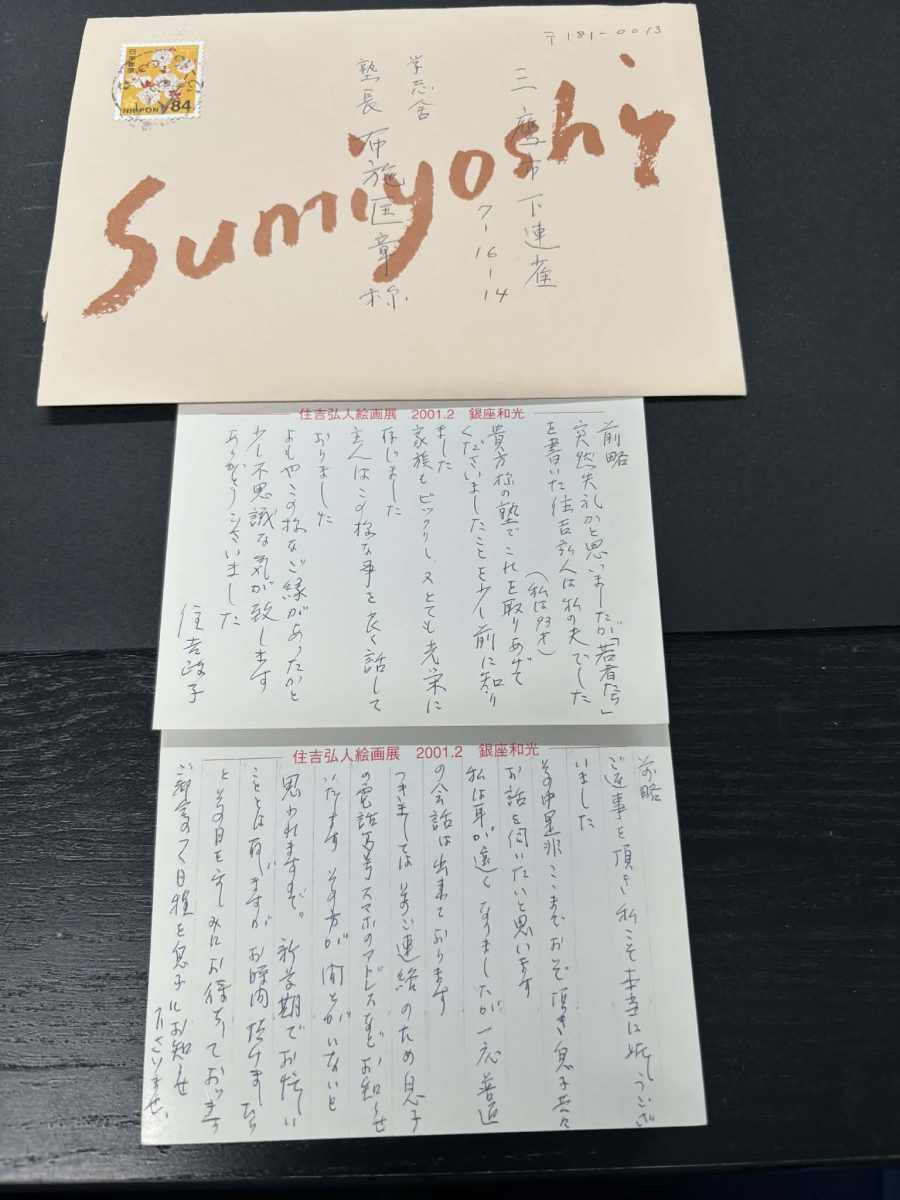 日本郵便
NIPPON 84
〒181-0013
三鷹市下連雀
7-16-14
学志舎
塾長 布施匡章様
Sumiyoshi
住吉弘人絵画展 2001.2 銀座和光
前略
突然失礼かと思いましたが「若者たち」
を書いた住吉弘人は私の夫でした
(私は93才)
貴方様の塾でこれを取りあげて
くださいましたことを少し前に知り
ました
家族もビックリし、又とても光栄に
存じました
主人はこの様な事を良く話して
おりました
よもやこの様なご縁があったかと
少し不思議な気が致します
ありがとうございました
住吉政子
住吉弘人絵画展 2001.2 銀座和光
前略
ご返事を頂き私こそ本当に嬉しうござ
いました
その中是非ここまでおいで頂き息子共々
お話を伺いたいと思います
私は耳が遠くなりましたが一応普通
の会話は出来ております
つきましては 御ご連絡のため息子
の電話番号スマホのアドレスなどお知らせ
いたします その方が間とがいないと
思われますので。 新学期でお忙しい
こととは存じますが お時間頂けましたら
とその日を楽しみにお待ちしております
ご都合のつく日程を息子にお知らせ
下さいませ、